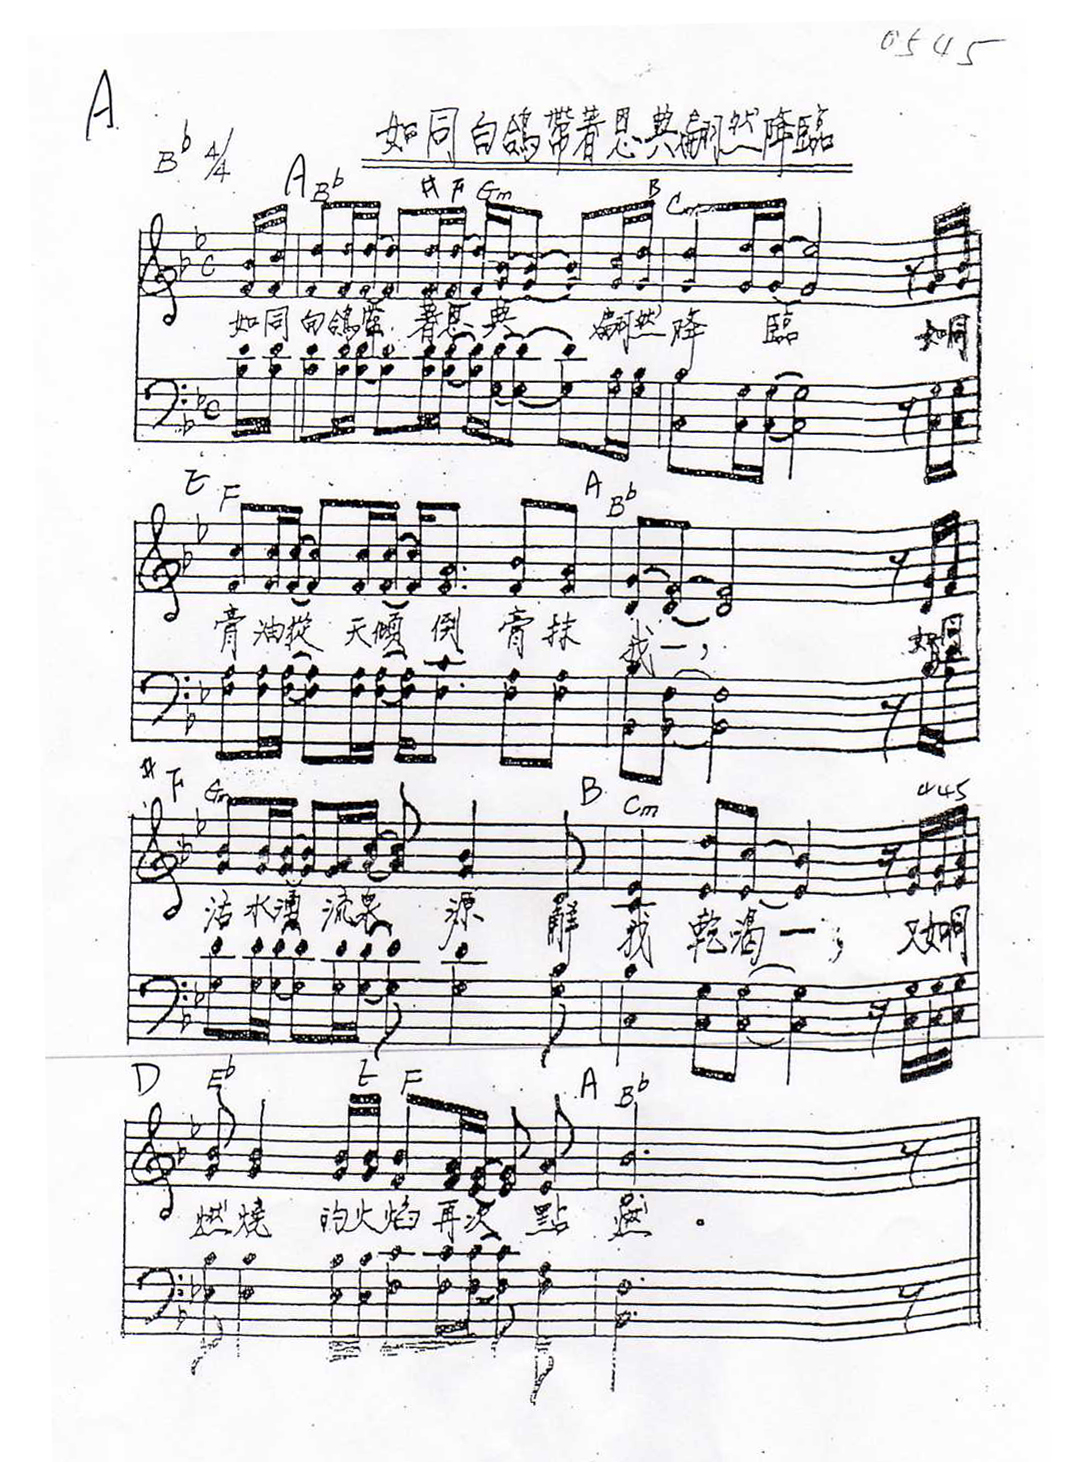 0545
A
如同白鴿帶著恩典翩然降臨
B♭ 4/4
A B♭ #F Gm B Cm
如同白鴿帶著恩典 翩然降 臨 如同
E F A B♭
膏油從天傾倒 膏抹 我一，
#F Gm B Cm 445
活水湧流泉 源 解 我 乾渴一； 又如同
D E♭ E F A B♭
燃燒 的火焰再次 點 燃 。